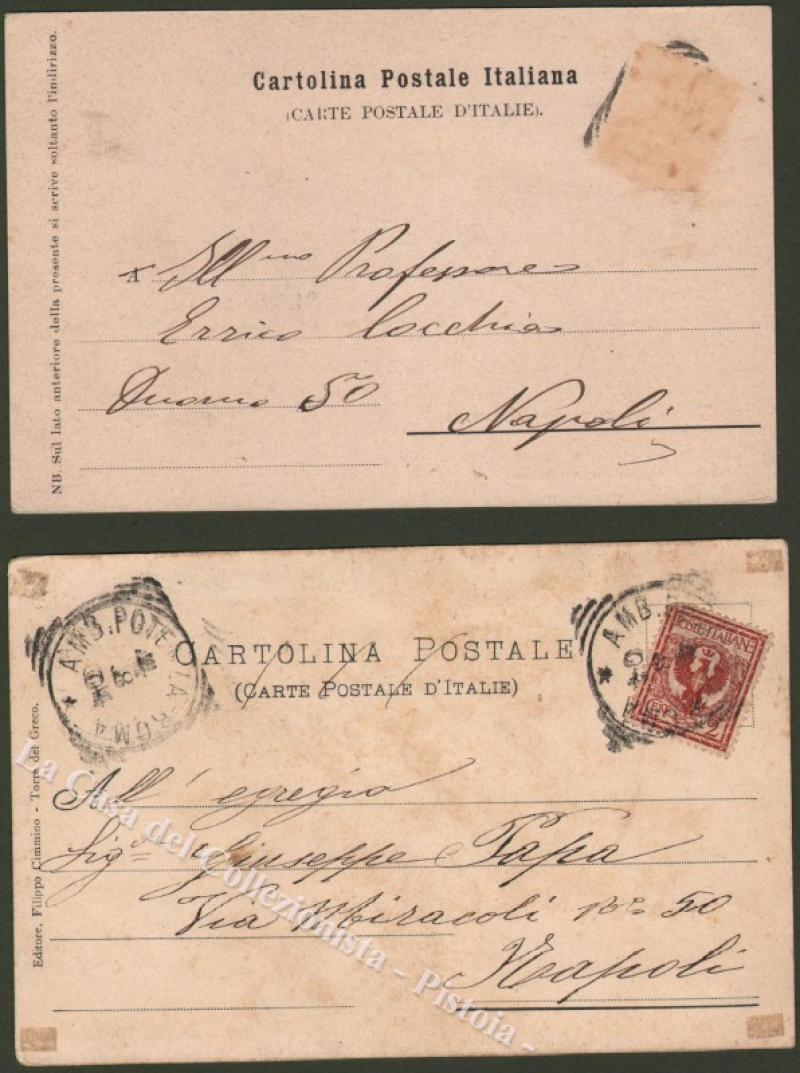 Cartolina Postale Italiana
(CARTE POSTALE D'ITALIE).
NB. Sul lato anteriore della presente si scrive soltanto l'indirizzo.
A Ill.mo Professore
Errico Cocchia
Duomo 50
Napoli
CARTOLINA POSTALE
(CARTE POSTALE D'ITALIE)
AMB. POTE
ROMA
AMB.
POSTE ITALIANE
Editore, Filippo Cimmino - Torre del Greco.
All' egregio
Sigr Giuseppe Papa
Via Miracoli No 50
Napoli
La Casa del Collezionista - Pistoia -